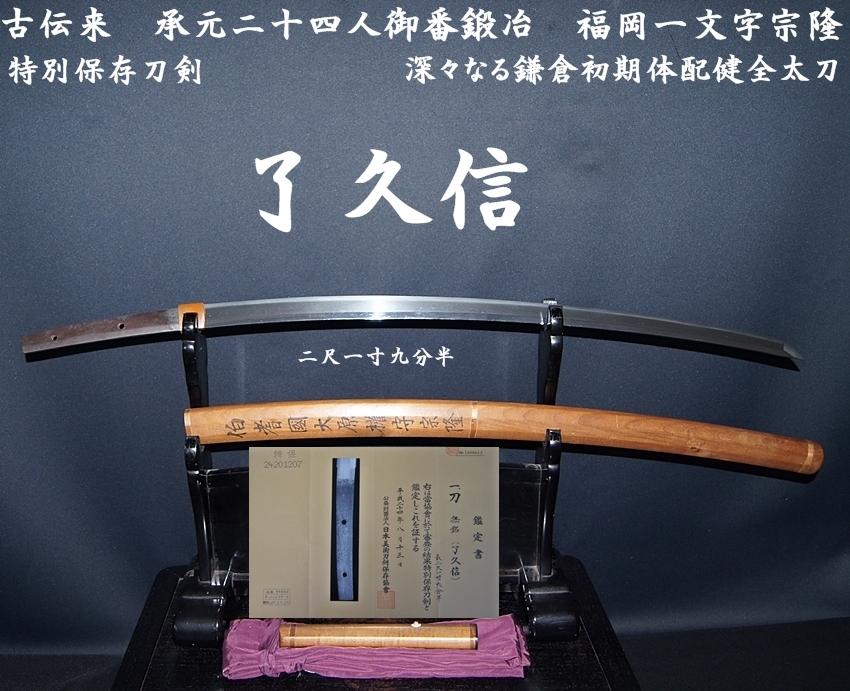 古伝来 承元二十四人御番鍛冶 福岡一文字宗隆
特別保存刀剣 深々なる鎌倉初期体配健全太刀
了久信
二尺一寸九分半
伯耆國大原権守宗隆
特保
24201207
鑑定書
一、刀 無銘（了久信）
長二尺一寸九分半
右は当協會に於て審査の結果特別保存刀剣と
鑑定しこれを証する
平成二十四年八月十三日
公益財団法人日本美術刀剣保存協會